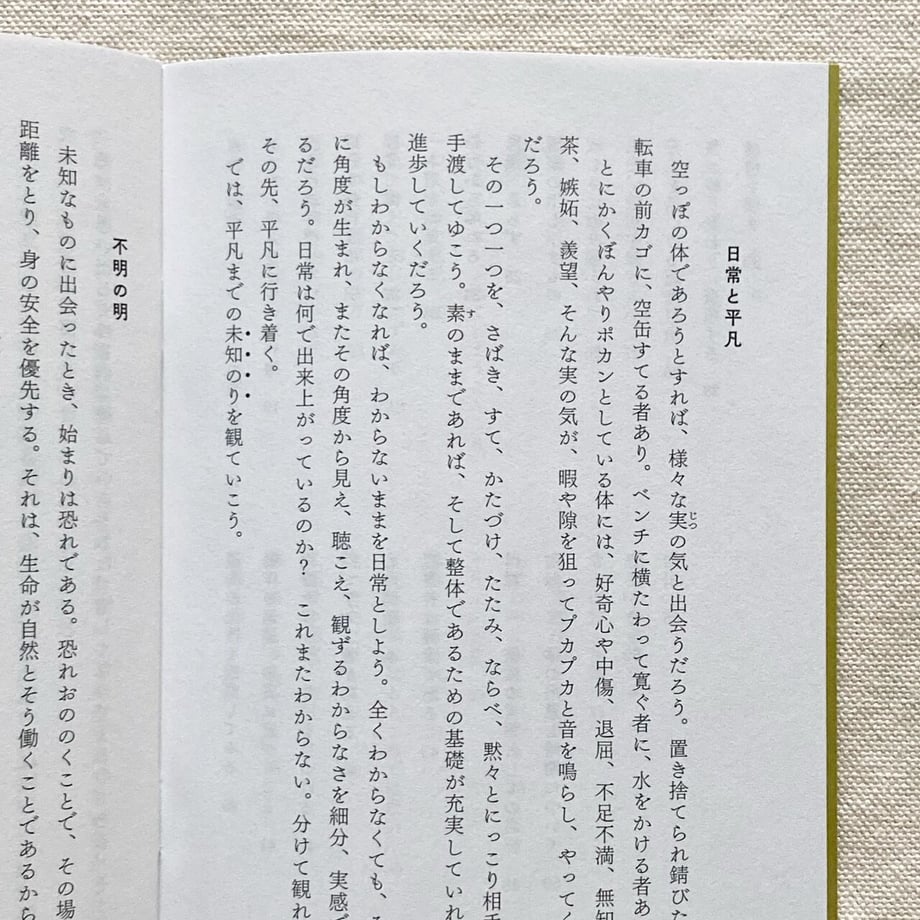 日常と平凡
空っぽの体であろうとすれば、様々な実の気と出会うだろう。置き捨てられ錆びた
転車の前カゴに、空缶すてる者あり。ベンチに横たわって寛ぐ者に、水をかける者あ
とにかくぼんやりポカンとしている体には、好奇心や中傷、退屈、不足不満、無知
茶、嫉妬、羨望、そんな実の気が、暇や隙を狙ってプカプカと音を鳴らし、やってく
だろう。
その一つ一つを、さばき、すて、かたづけ、たたみ、ならべ、黙々とにっこり相手
手渡してゆこう。素のままであれば、そして整体であるための基礎が充実していれ
進歩していくだろう。
もしわからなくなれば、わからないままを日常としよう。全くわからなくても、
に角度が生まれ、またその角度から見え、聴こえ、観ずるわからなさを細分、実感で
るだろう。日常は何で出来上がっているのか？これまたわからない。分けて観れ
その先、平凡に行き着く。
では、平凡までの未知のりを観ていこう。
不明の明
未知なものに出会ったとき、始まりは恐れである。恐れおののくことで、その場
距離をとり、身の安全を優先する。それは、生命が自然とそう働くことであるから